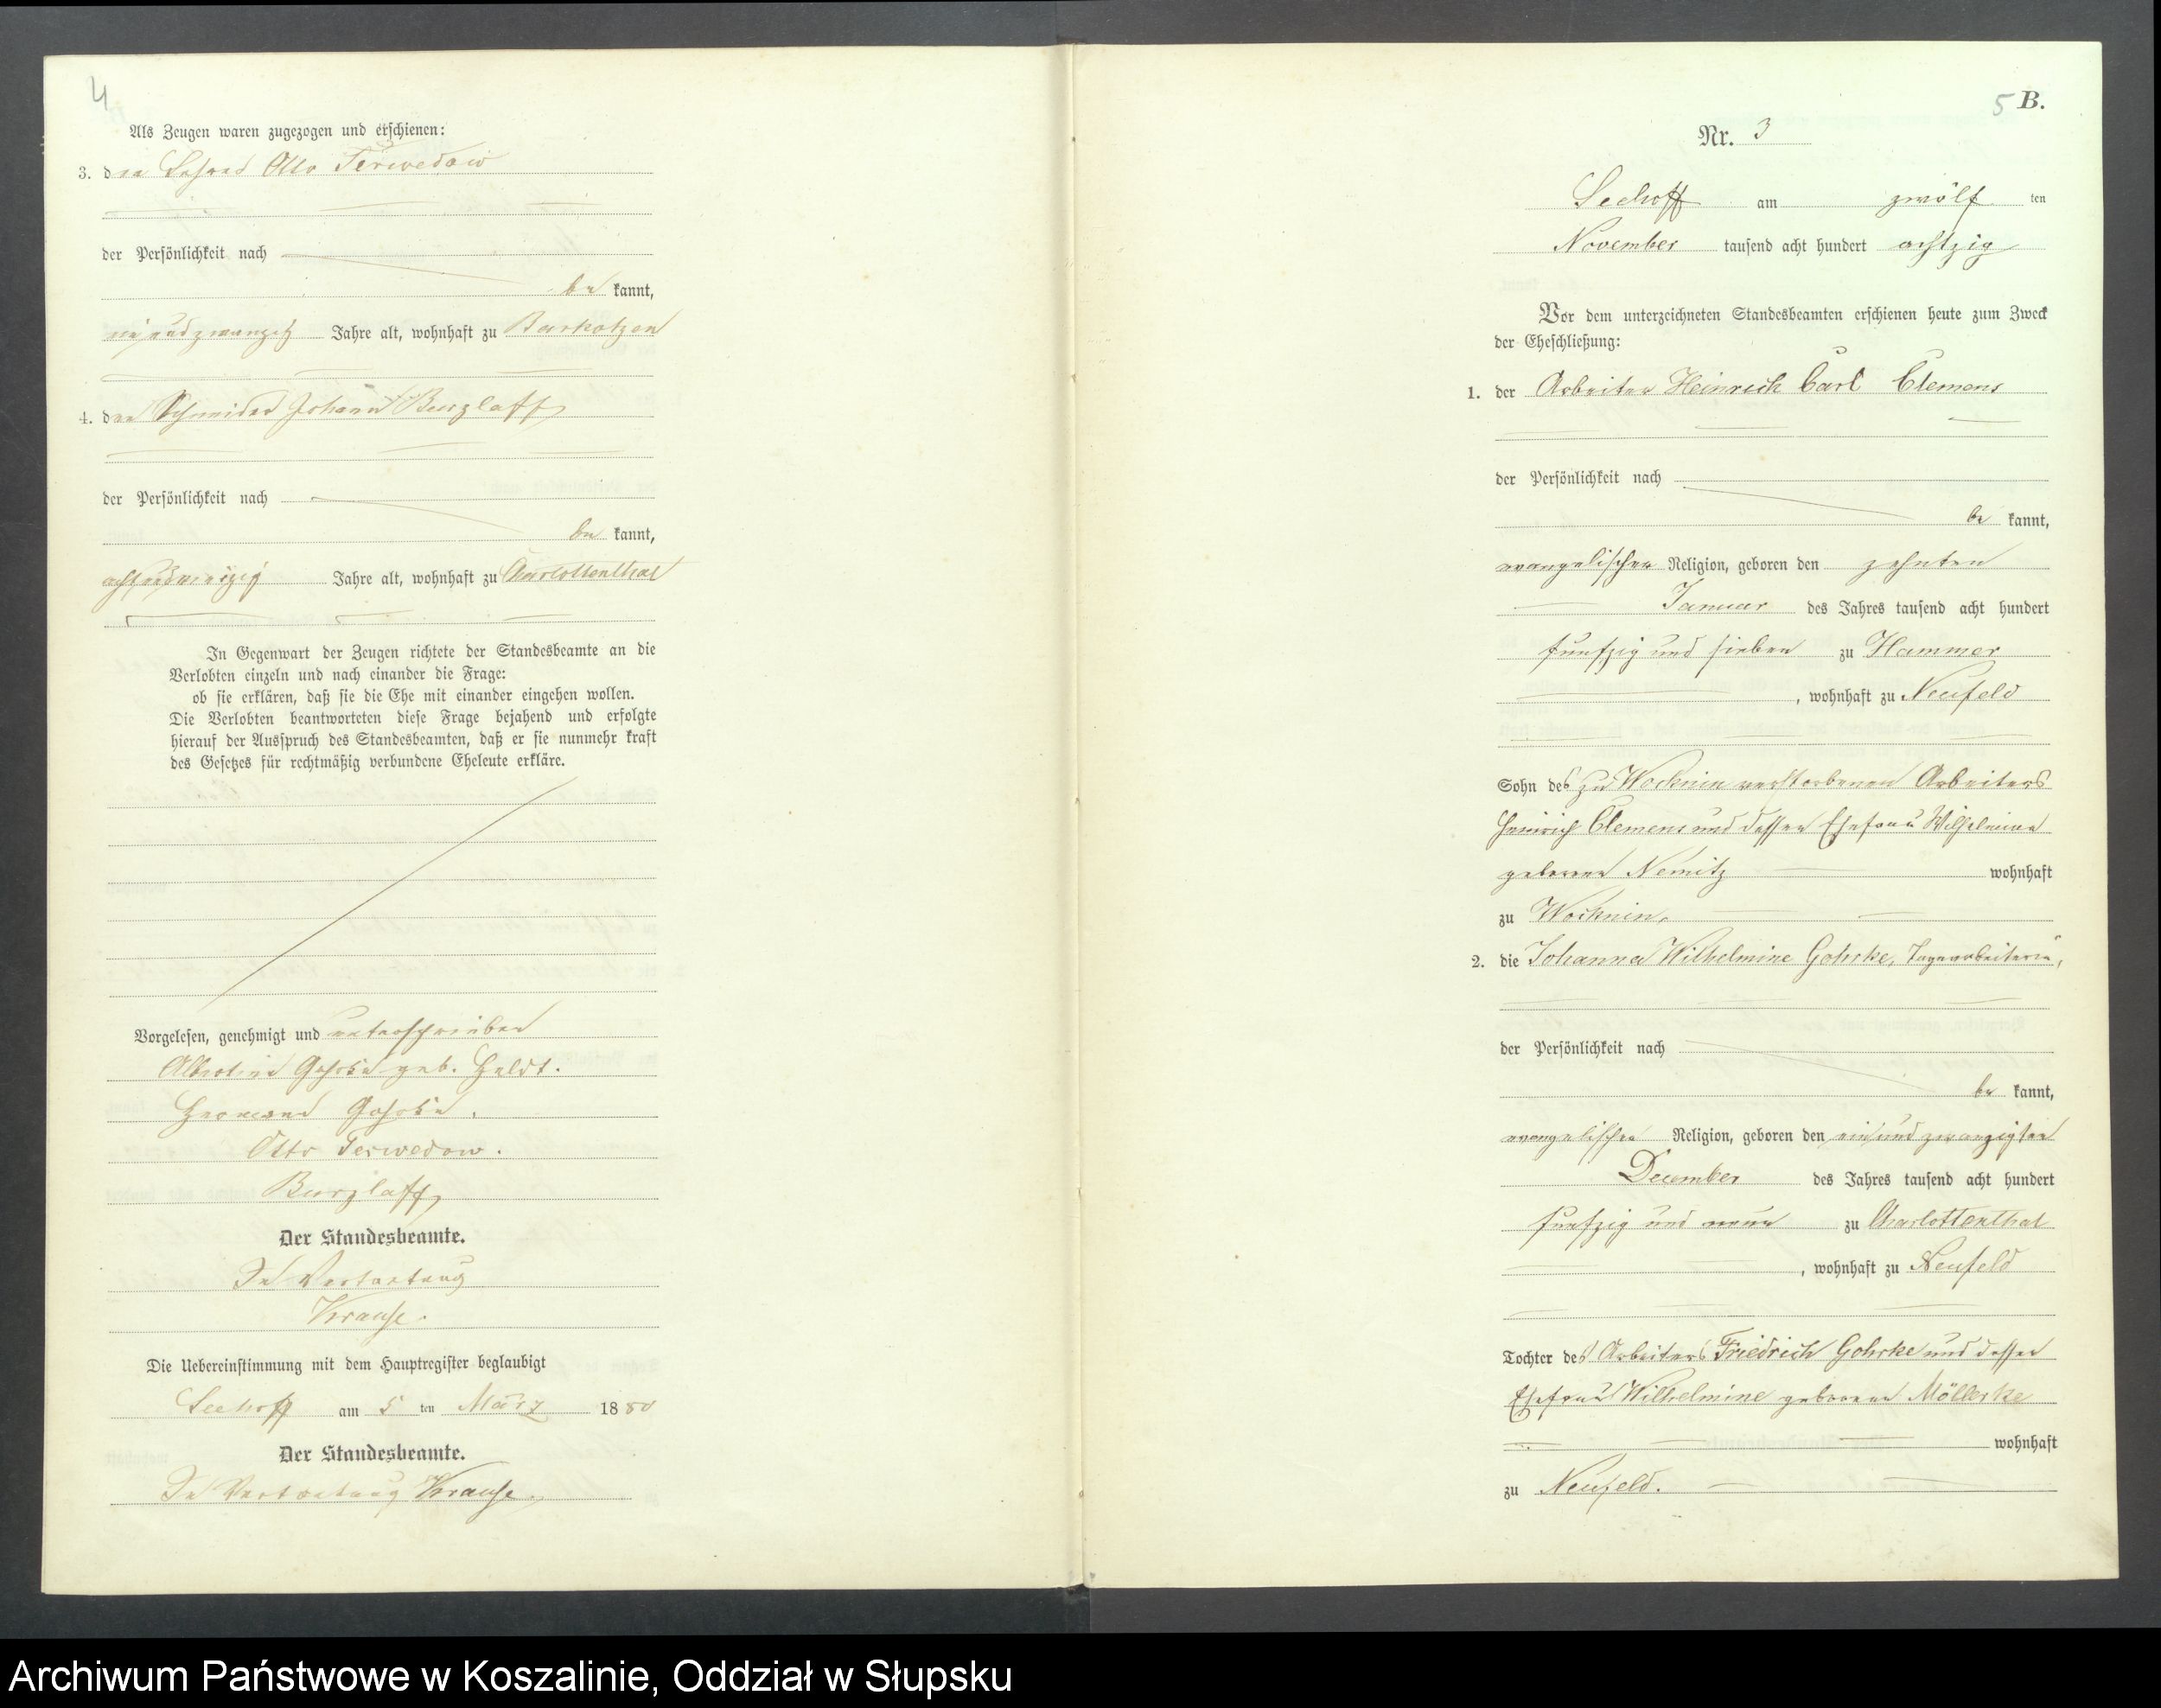 4
Als Zeugen waren zugezogen und erschienen:
3. den Otto Terwedow
der Persönlichkeit nach
be kannt,
einundzwanzig Jahre alt, wohnhaft zu Barkotzen
4. den Schneider Johann Burzlaff
der Persönlichkeit nach
be kannt,
Jahre alt, wohnhaft zu Charlottenthal
In Gegenwart der Zeugen richtete der Standesbeamte an die
Verlobten einzeln und nach einander die Frage:
ob sie erklären, daß sie die Ehe mit einander eingehen wollen.
Die Verlobten beantworteten diese Frage bejahend und erfolgte
hierauf der Ausspruch des Standesbeamten, daß er sie nunmehr kraft
des Gesetzes für rechtmäßig verbundene Eheleute erkläre.
Vorgelesen, genehmigt und unterschrieben
Albertine Gohrke geb. Heldt.
Hermann Gohrke.
Otto Terwedow.
Burzlaff
Der Standesbeamte.
In Vertretung
Krause.
Die Uebereinstimmung mit dem Hauptregister beglaubigt
Seehoff am 5 ten März 18 80
Der Standesbeamte.
In Vertretung Krause.
5 B.
Nr. 3
Seehoff am zwölf ten
November tausend acht hundert achtzig
Vor dem unterzeichneten Standesbeamten erschienen heute zum Zweck
der Eheschließung:
1. der Arbeiter Heinrich Carl Clemens
der Persönlichkeit nach
be kannt,
evangelischer Religion, geboren den zehnten
Januar des Jahres tausend acht hundert
funfzig und sieben zu Hammer
, wohnhaft zu Neufeld
Sohn des zu Wocknin verstorbenen Arbeiters
Heinrich Clemens und dessen Ehefrau Wilhelmine
geborene Nemitz wohnhaft
zu Wocknin.
2. die Johanna Wilhelmine Gohrke, Tagearbeiterin,
der Persönlichkeit nach
be kannt,
evangelischer Religion, geboren den einundzwanzigsten
December des Jahres tausend acht hundert
funfzig und neun zu Charlottenthal
, wohnhaft zu Neufeld
Tochter des Arbeiters Friedrich Gohrke und dessen
Ehefrau Wilhelmine geborene Möllerke
wohnhaft
zu Neufeld.
Archiwum Państwowe w Koszalinie, Oddział w Słupsku